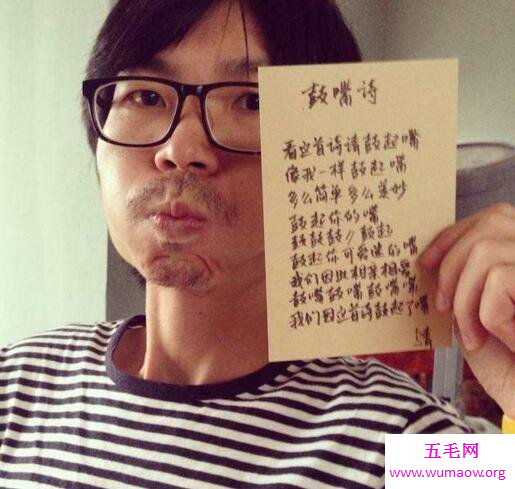 鼓嘴诗
看这首诗请鼓起嘴
像我一样鼓起嘴
多么简单多么美妙
鼓起你的嘴
鼓鼓鼓//鼓起
鼓起你可爱迷的嘴
我们因此相亲相爱
鼓嘴鼓嘴鼓嘴嘴
我们因这首诗鼓起了嘴
五毛网
www.wumaow.org